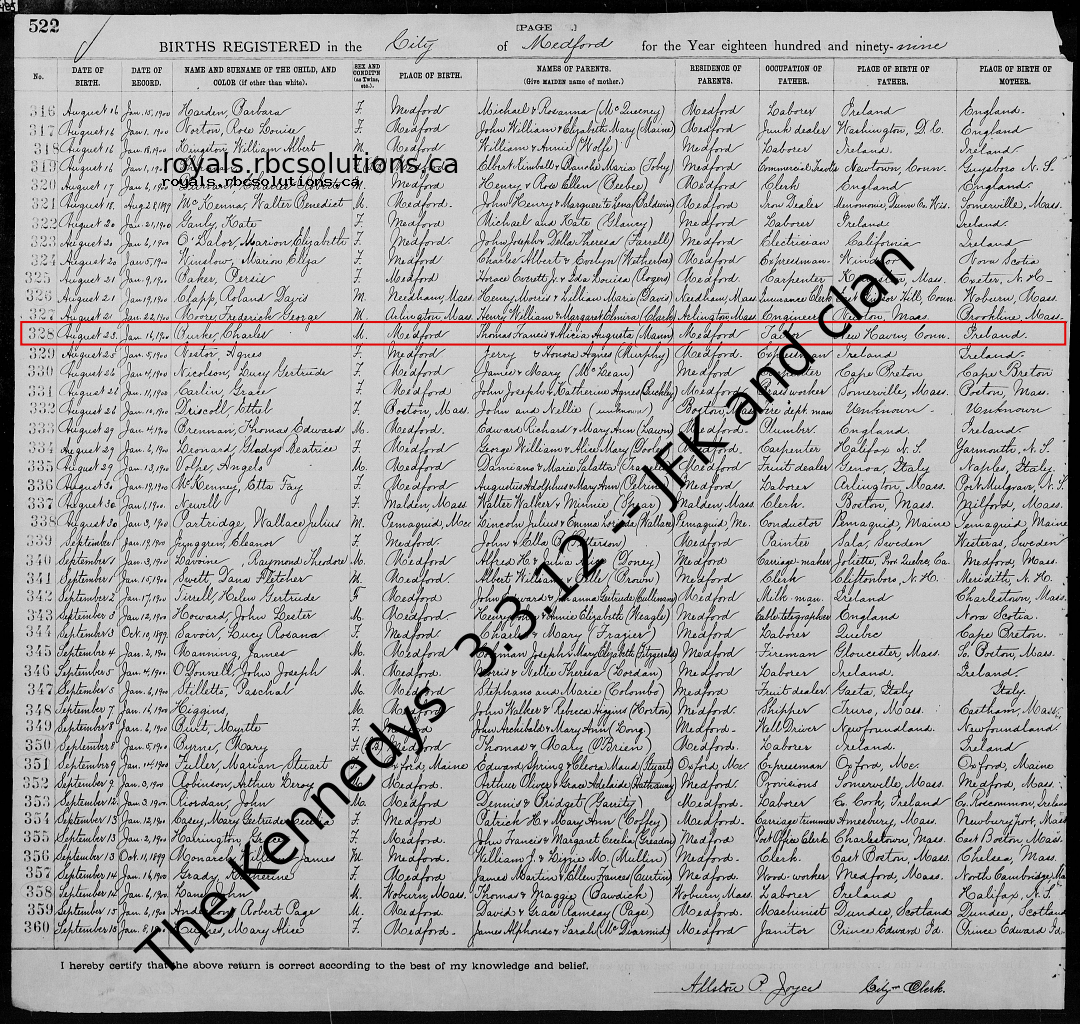 522
[PAGE ]
BIRTHS REGISTERED in the City of Medford for the Year eighteen hundred and ninety-nine
No. DATE OF BIRTH. DATE OF RECORD. NAME AND SURNAME OF THE CHILD, AND COLOR (if other than white). SEX AND CONDIT'N (as Twins, etc.). PLACE OF BIRTH. NAMES OF PARENTS. (Give MAIDEN name of mother.) RESIDENCE OF PARENTS. OCCUPATION OF FATHER. PLACE OF BIRTH OF FATHER. PLACE OF BIRTH OF MOTHER.
316 August 16 Jan. 15, 1900 Harden, Barbara F. Medford Michael & Rosanna (McQueney) Medford Laborer Ireland England.
317 August 16 Jan. 1, 1900 Norton, Rose Louise F. Medford John William & Elizabeth Mary (Maine) Medford Junk dealer Washington, D.C. England
318 August 16 Jan. 18, 1900 Kingston, William Albert M. Medford William & Annie (Wolfe) Medford Laborer Ireland. Ireland.
royals.rbcsolutions.ca
319 August 16 F. Medford Elbert Kimball & Blanche Maria (Toby) Medford Newtown, Conn. Guysboro N.S.
royals.rbcsolutions.ca
320 August 17 Medford Henry & Rose Ellen (Beebee) Medford Clerk England England.
321 August 18 Aug. 28, 1899 McKenna, Walter Benedict M. Medford. John Henry & Marguerite Lena (Baldwin) Medford Iron Dealer Somerville, Mass.
322 August 20 Jan. 21, 1900 Ganly, Kate F. Medford Michael and Kate (Glancy) Medford Laborer Ireland Ireland.
323 August 20 Jan. 6, 1900 O'Dalor, Marion Elizabeth F. Medford. John Joseph & Della Theresa (Farrell) Medford Electrician California Ireland
324 August 20 Jan. 5, 1900 Winslow, Marion Eliza F. Medford Charles Albert & Evelyn (Wetherbee) Medford Expressman. Nova Scotia
325 August 21 Jan. 9, 1900 Baker, Persis F. Medford Horace Everett Jr. & Ida Louisa (Rogers) Medford Carpenter Mass. Exeter, N.H.
326 August 21 Jan. 19, 1900 Clapp, Roland Davis M. Needham, Mass. Henry Morris & Lillian Marie (Davis) Needham, Mass. Insurance Clerk Hill, Conn. Woburn, Mass.
327 August 21 Jan. 22, 1900 Moore, Frederick George M. Arlington, Mass. Henry William & Margaret Elmira (Clark) Arlington, Mass. Engineer Newton, Mass. Brookline, Mass.
328 August 23 Jan. 16, 1900 Burke, Charles M. Medford Thomas Francis & Alicia Augusta (Mann) Medford New Haven, Conn. Ireland.
329 August 25 Jan. 5, 1900 Nestor, Agnes F. Medford Jerry & Honora Agnes (Murphy) Medford Ireland Ireland.
330 August 26 Jan. 4, 1900 Nicolson, Lucy Gertrude F. Medford James & Mary (McLean) Medford Carpenter Cape Breton Cape Breton
331 August 28 Jan. 11, 1900 Carlin, Grace F. Medford John Joseph & Katherine Agnes (Buckley) Medford Somerville, Mass. Boston, Mass.
332 August 28 Jan. 10, 1900 Driscoll, Ethel F. Boston, Mass. John and Nellie (unknown) Boston, Mass. Fire dept. man Unknown Unknown
333 August 29 Jan. 4, 1900 Brennan, Thomas Edward M. Medford. Edward Richard & Mary Ann (Dawn) Medford. Plumber. England. Ireland.
334 August 29 Jan. 6, 1900 Leonard, Gladys Beatrice F. Medford George William & Alice Mary Medford Carpenter Halifax N.S. Yarmouth, N.S.
335 August 29 Jan. 13, 1900 Volpe, Angelo M. Medford Damiano & Maria Salatta Medford Fruit dealer Genoa, Italy Naples, Italy.
336 August 30 Jan. 19, 1900 McKenney, Etta Fay F. Medford Augustus Adolphus & Mary Ann Medford Laborer Arlington, Mass. Port Mulgrave, N.S.
337 August 30 Jan. 1, 1900 Newell F. Malden, Mass. Walter Walker & Minnie Malden, Mass. Clerk. Boston, Mass. Milford, Mass.
338 August 30 Jan. 3, 1900 Partridge, Wallace Julius M. Pemaquid, Me. Lincoln Julius & Emma (Wallace) Pemaquid, Me. Conductor Pemaquid, Maine Pemaquid Maine
339 September 1 Jan. 19, 1900 Ljunggren, Eleanor F. Medford. John & Ella (Peterson) Medford Painter Sala, Sweden Westeras, Sweden
340 September 1 Jan. 3, 1900 Lavoine, Raymond Theodore M. Medford Alfred H. & (Doney) Medford. Carriage-maker Joliette, Medford, Mass.
341 September 1 Jan. 15, 1900 Swett, Dana Fletcher M. Medford. Albert William & (Brown) Medford. Clerk Cliftonboro, N.H. Meridith, N.H.
342 September 2 Jan. 17, 1900 Tirrell, Helen Gertrude F. Medford John Edward & Johanna Gertrude (Cullinane) Medford Milk-man. Ireland Charlestown, Mass.
343 September 2 Jan. 12, 1900 Howard, John Lester M. Medford. Henry & Annie Elizabeth (Neagle) Medford. Cable telegrapher England Nova Scotia.
344 September 3 Oct. 10, 1899. Savoir, Lucy Rosana F. Medford Charles & Mary (Frazier) Medford. Laborer Quebec Cape Breton.
345 September 4 Jan. 2, 1900 Manning, James M. Medford. Joseph & Mary Elizabeth (Fitzgerald) Medford Fireman Gloucester, Mass. E. Boston, Mass.
346 September 5 Jan. 4, 1900 O'Donnell, John Joseph M. Medford. & Nellie Theresa (Jordan) Medford. Laborer Ireland. Ireland.
347 September 5 Jan. 6, 1900 Stilletto, Paschal M. Medford Stephano and Marie (Colombo) Medford Fruit dealer Gaeta, Italy Italy.
348 September 7 Jan. 16, 1900 Higgins, M. Medford John Walker & Rebecca Higgins (Horton) Medford. Shipper Truro, Mass. Eastham, Mass.
349 September 8 Jan. 6, 1900 Burt, Myrtle F. Medford John Archibald & Mary Ann (Long) Medford. Well Driver Newfoundland. Newfoundland.
350 September 8 Jan. 5, 1900 Byrne, Mary F. Medford Thomas & Mary (O'Brien) Medford. Laborer Ireland. Ireland
351 September 9 Jan. 14, 1900 Fuller, Marian Stuart F. Oxford, Maine Edward Spring & Cleora Maud (Stuart) Oxford, Me. Expressman Oxford, Me. Oxford, Maine
352 September 9 Jan. 3, 1900 Robinson, Arthur Leroy M. Medford. Arthur Oliver & Grace Adelaide (Hathaway) Medford. Provisions Somerville, Mass. Medford, Mass.
353 September 12 Jan. 3, 1900 Riordan, John M. Medford. Dennis & Bridget (Garity) Medford. Laborer Co. Cork, Ireland Co. Roscommon, Ireland
354 September 13 Jan. 12, 1900 Casey, Mary Gertrude Cecelia F. Medford Patrick H. & Mary Ann (Coffey) Medford. Carriage trimmer Amesbury, Mass. Newburyport, Mass
355 September 13 Jan. 2, 1900 Harrington, F. Medford. John Francis & Margaret Cecelia (Greadon) Medford. Post Office Clerk Charlestown, Mass. East Boston, Mass.
356 September 13 Oct. 11, 1899 James M. Medford. William J. & Lizzie M. (Mullin) Medford. Clerk. East Boston, Mass. Chelsea, Mass.
357 September 14 Jan. 16, 1900 Grady, Katherine F. Medford. James Martin & Ellen Frances (Curtin) Medford. Wood-worker Medford, Mass. North Cambridge, Ma
358 September 14 Jan. 6, 1900 Lane, John M. Woburn, Mass. Thomas & Maggie (Cavdick) Woburn, Mass. Laborer Ireland Halifax, N.S.
359 September 15 Jan. 6, 1900 Anderson, Robert Page M. Medford. David & Grace Ramsay (Page) Medford. Machinist Dundee, Scotland Dundee, Scotland
360 September 15 Jan. 8, 1900 Mary Alice F. Medford. James Alphonso & Sarah (McDiarmid) Medford. Janitor Prince Edward Id. Prince Edward Id.
The Kennedys 3.3.12 -- JFK and clan
I hereby certify that the above return is correct according to the best of my knowledge and belief,
Allston P. Joyce City Clerk.